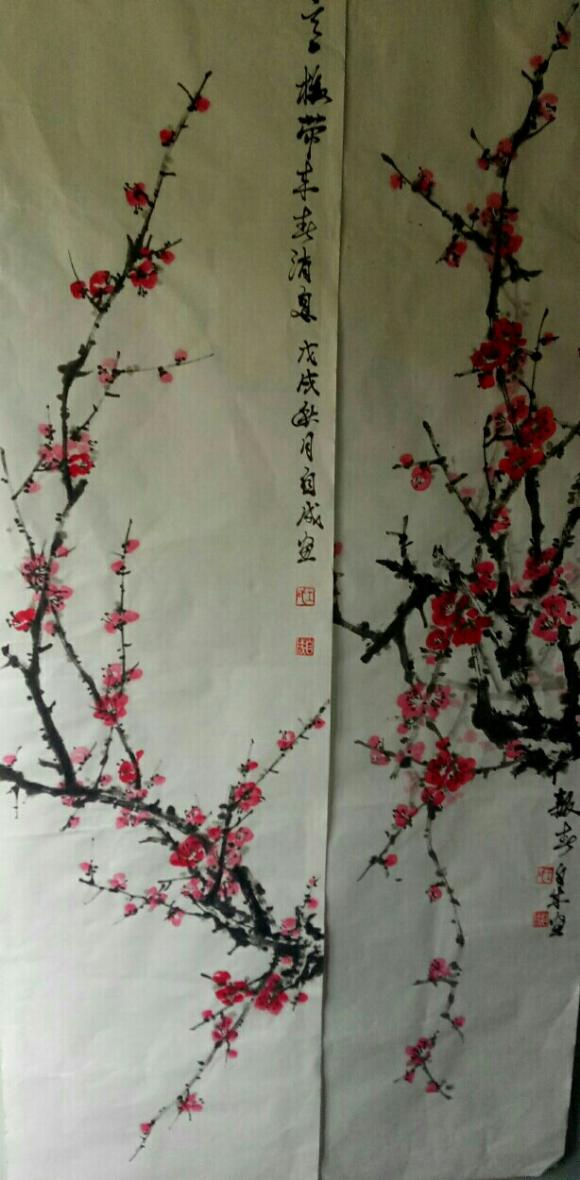 梅带来春消息 戊戌秋月自成画
報春
自成画